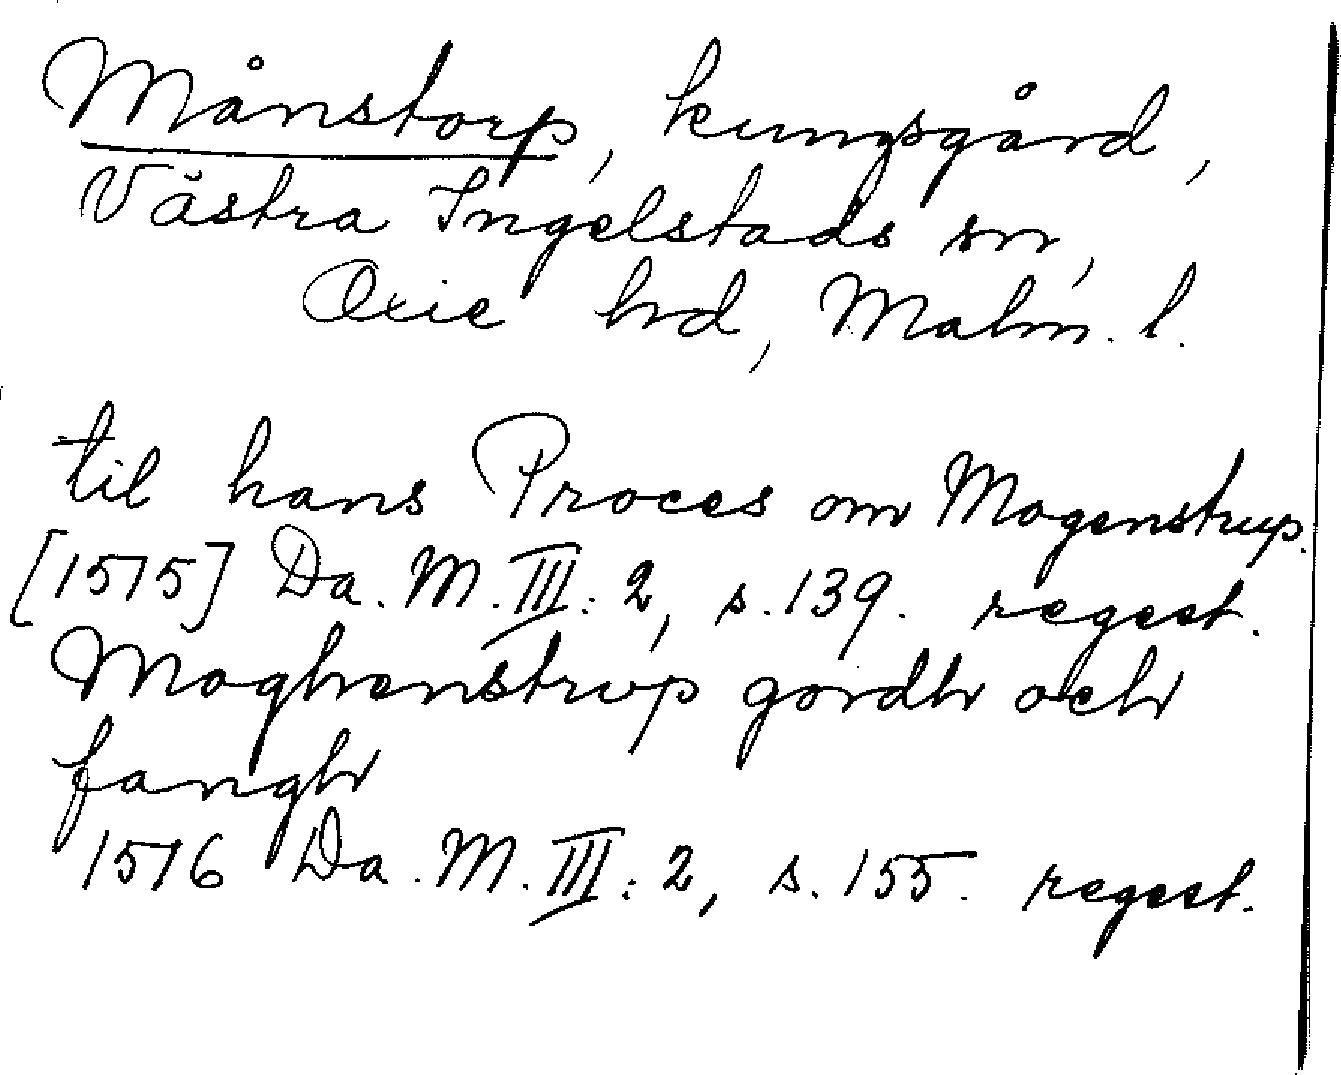 Månstorp, kungsgård,
Västra Ingelstads sn,
Oxie hd, Malm. l.
til hans Proces om Mogenstrup.
[1575] Da. M. III: 2, s. 139. regest.
Moghenstrvp gordh och
fangh
1576 Da. M. III: 2, s. 155. regest.